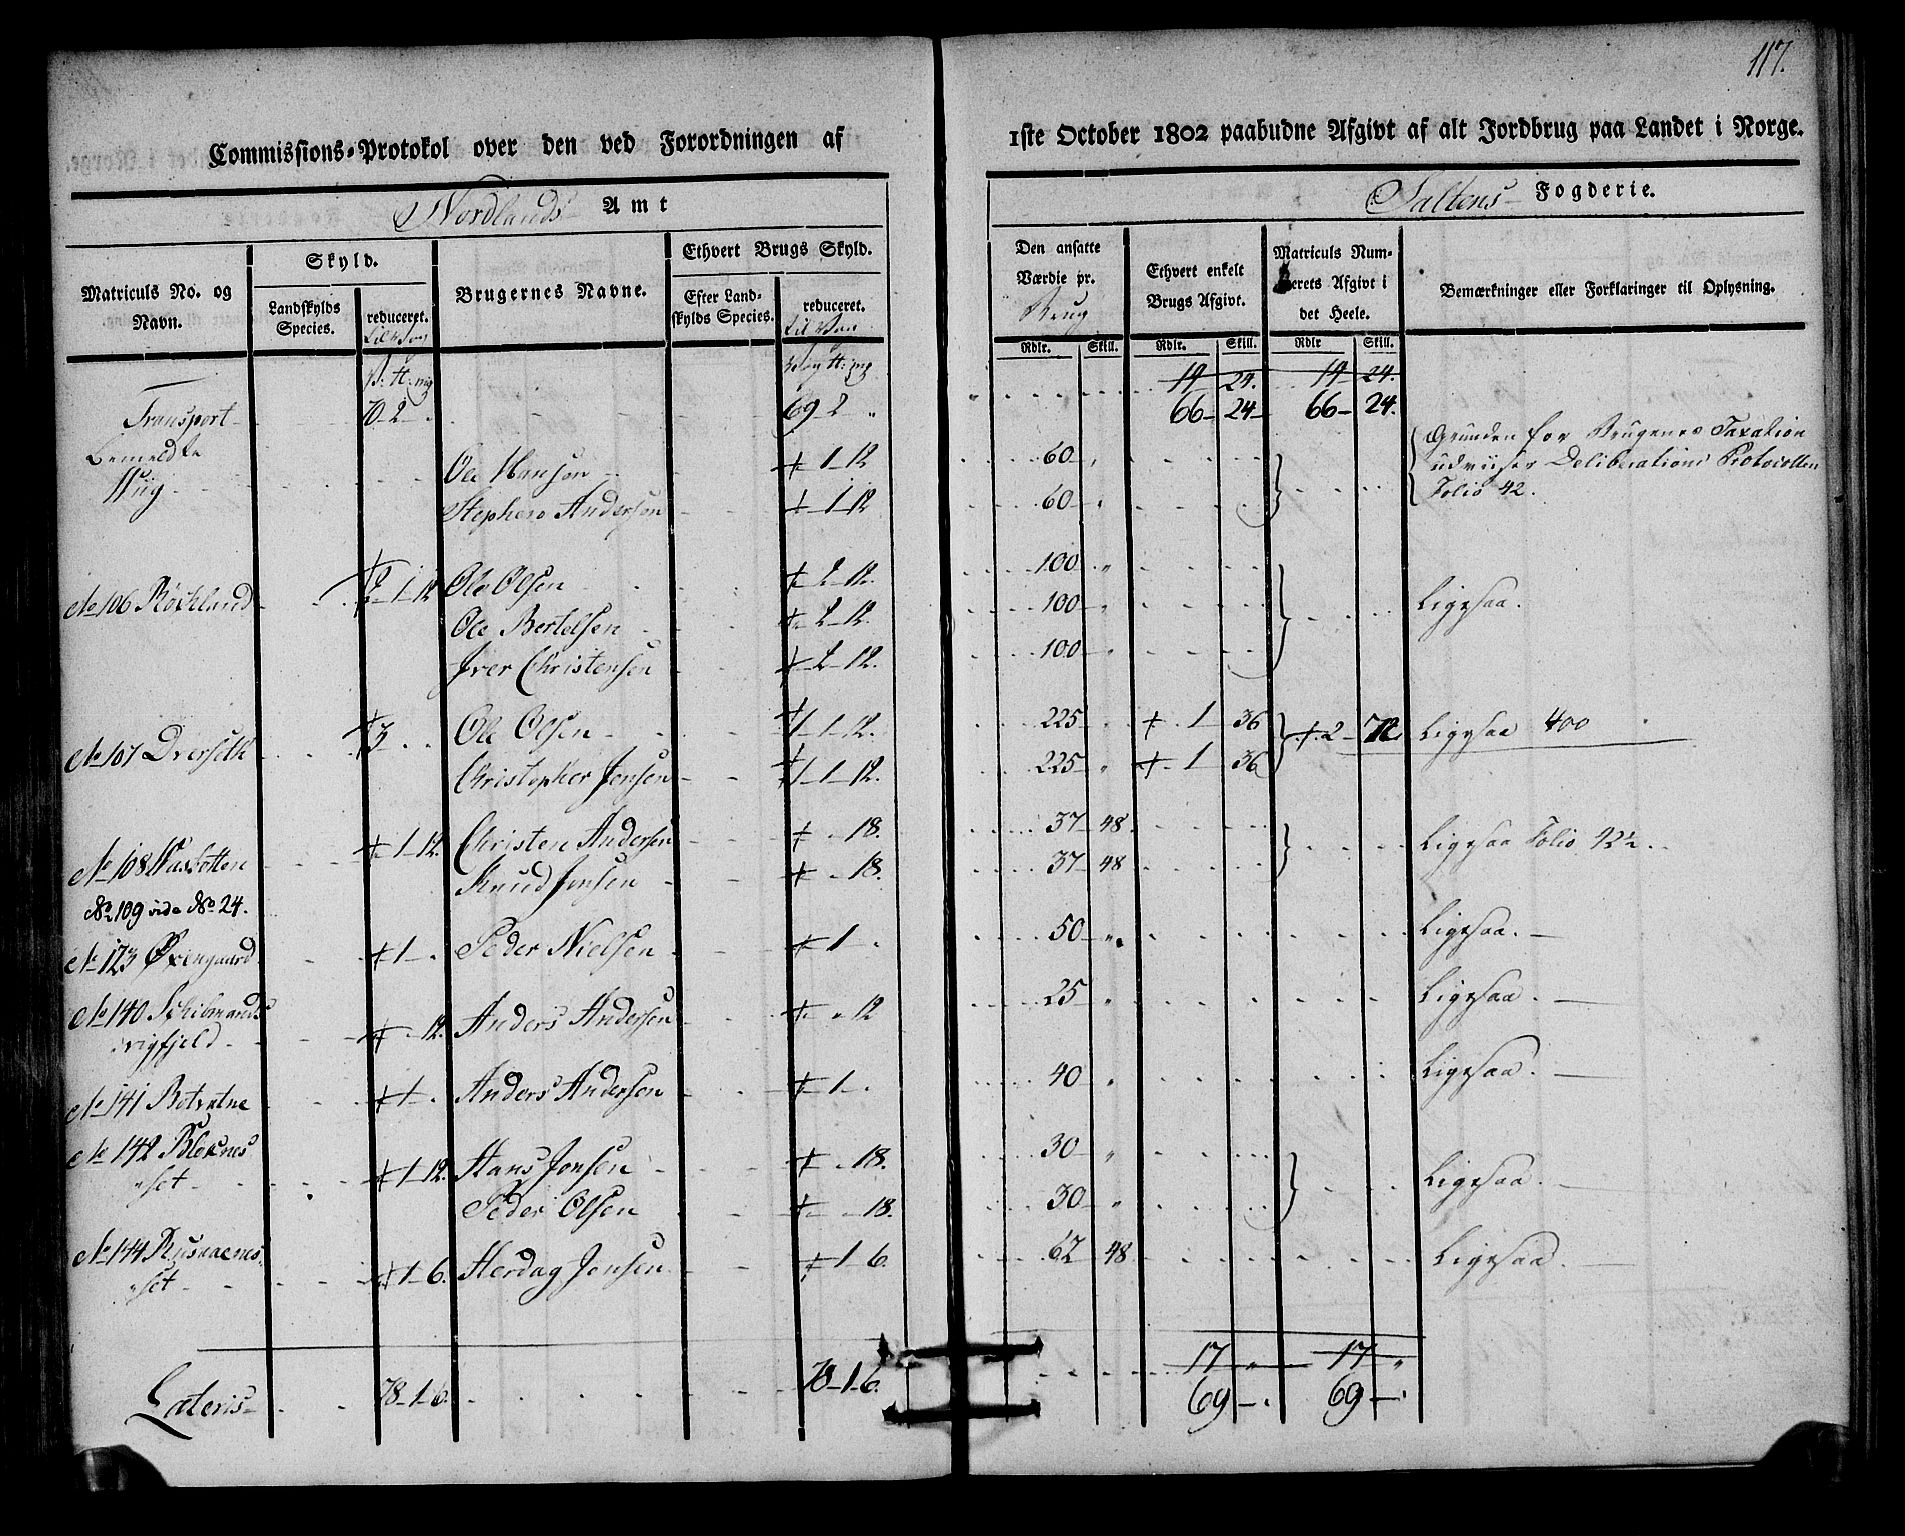 117.
Commissions-Protokol over den ved Forordningen af
1ste October 1802 paabudne Afgivt af alt Jordbrug paa Landet i Norge.
Nordlands Amt
Saltens Fogderie.
Matriculs No. og Navn.
Skyld.
Landskylds Species.
reduceret.
Brugernes Navne.
Ethvert Brugs Skyld.
Efter Landskylds Species.
reduceret.
Den ansatte Værdie pr. Brug
Ethvert enkelt Brugs Afgivt.
Matriculs Numerets Afgivt i det Heele.
Bemærkninger eller Forklaringer til Oplysning.
Rdlr. Skill. Rdlr. Skill. Rdlr Skill.
19 24. 19 24.
Transport 70 2 69 2 66 24 66 24.
Bemeldte
Ole Hansen 1 12 60 Grunden for Brugenes Taxation
udviiser Deliberations Protocollen
Stephen Andersen 1 12 60 Folio 42.
No 106 Röchland 2 1 12 Ole Olsen 2 12. 100 Ligesaa.
Ole Bertelsen 2 12. 100
Iver Christensen 2 12. 100
No 107 3 Ole Olsen 1 1 12. 225 1 36 2 72 Ligesaa 400
Christopher Jensen 1 1 12. 225 1 36
No 108 1 12. Christen Andersen 18. 37 48 Ligesaa Folio 42½.
Knud Jensen 18. 37 48
No 109 vide No 24.
No 123 Øxengaard 1 Peder Nielsen 1 50 Ligesaa.
No 140
12. Anders Andersen 12 25 Ligesaa.
No 141 Botvatne 1 Anders Andersen 1 40 Ligesaa.
No 142
set 1 12. Hans Jensen 18. 30 Ligesaa.
Peder Olsen 18. 30
No 144
set 1 6. Herdag Jensen 1 6. 62 48 Ligesaa.
17 17
Lateris 78 1 6. 78 1 6. 69 69